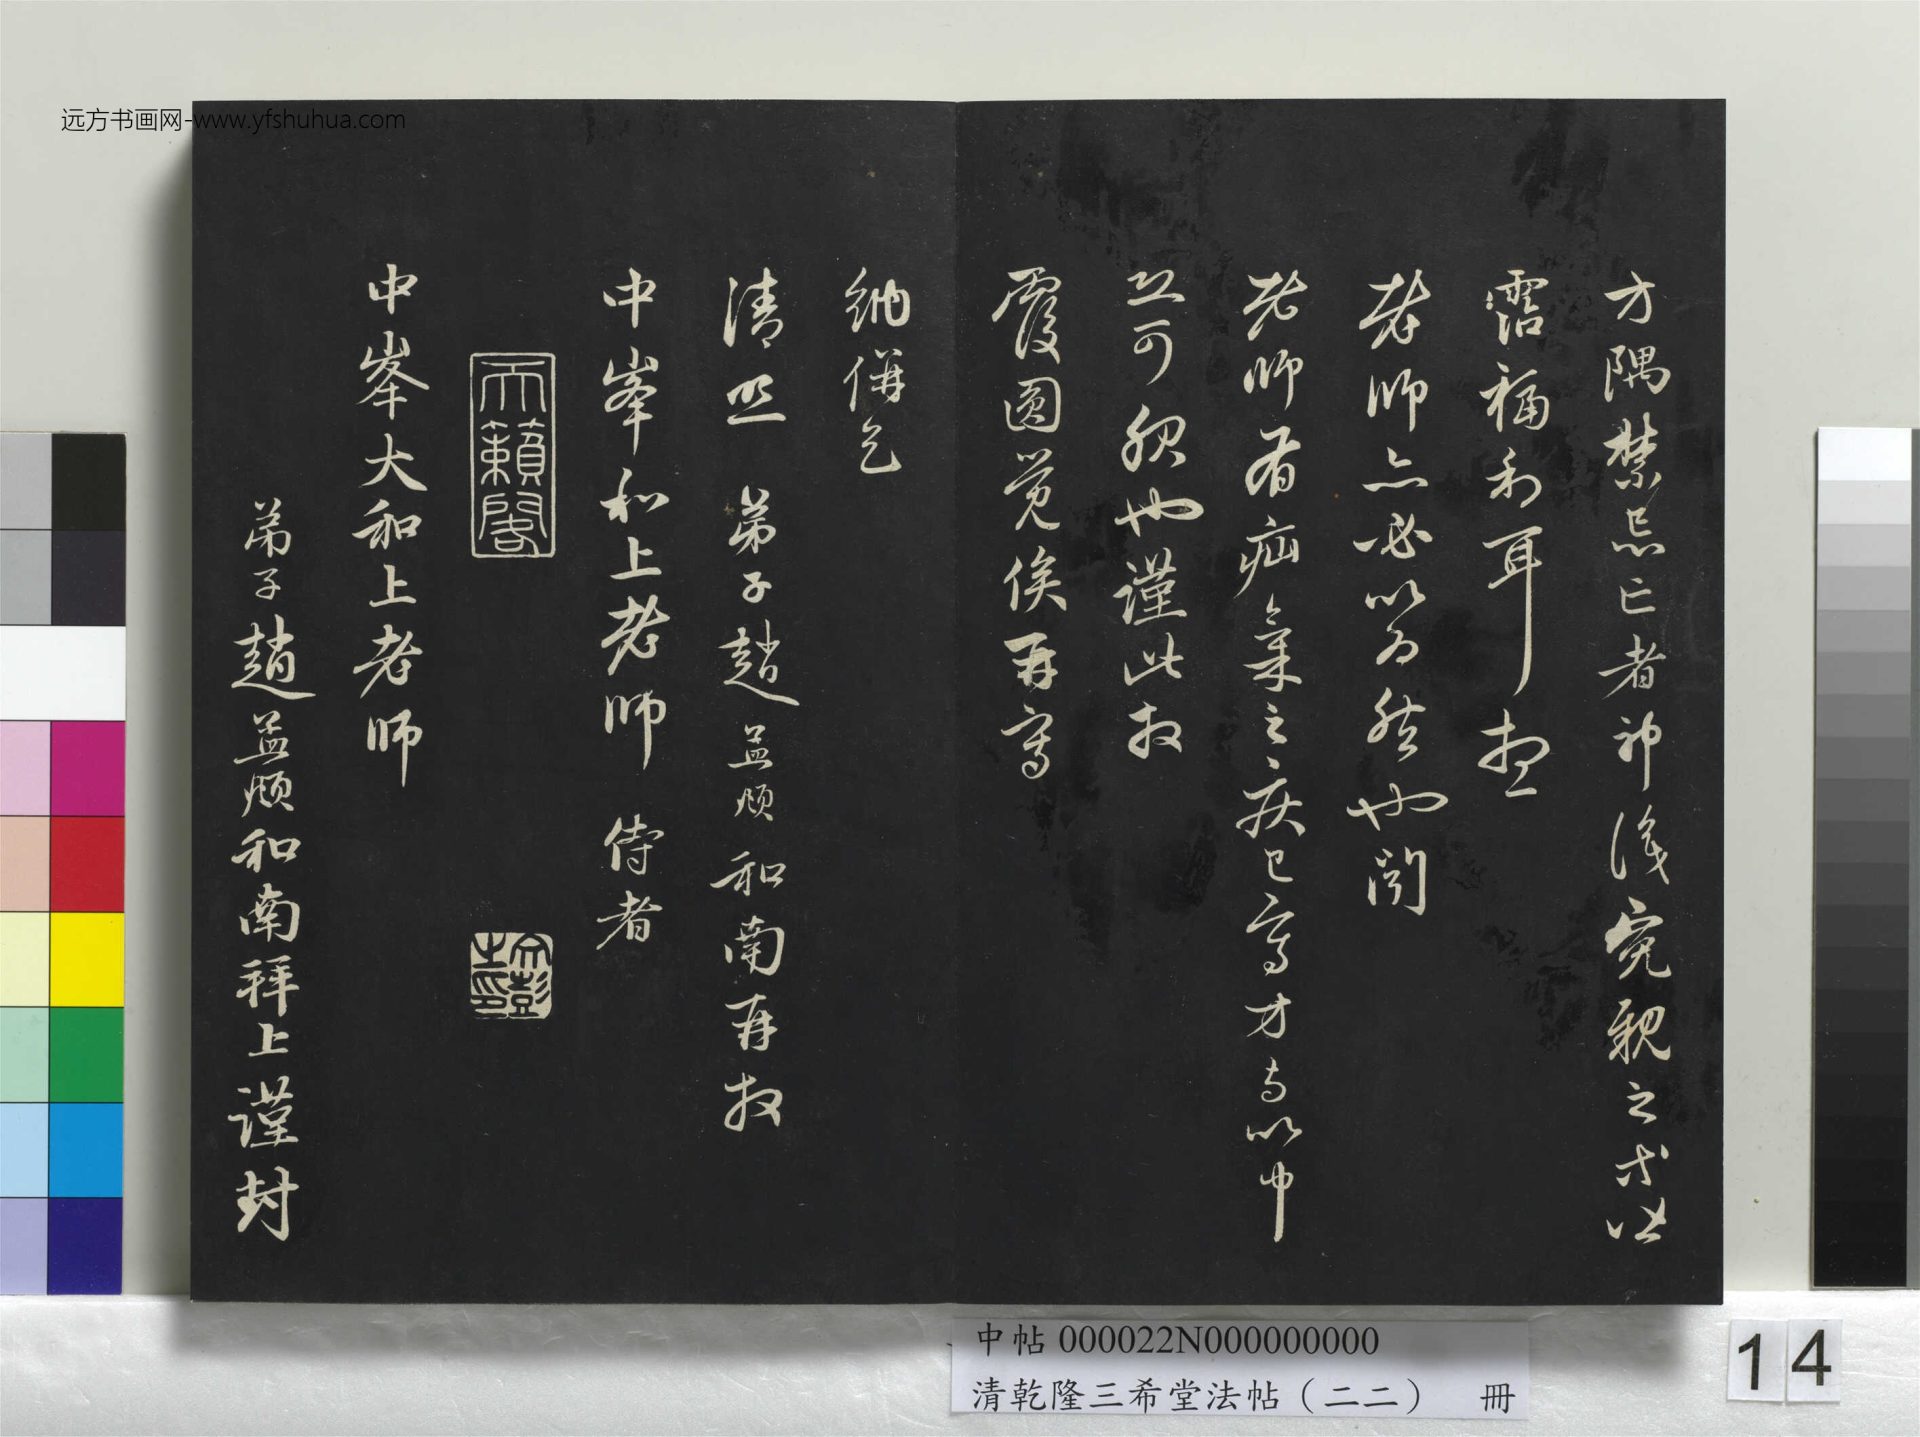 远方书画网-www.yfshuhua.com
方隅禁忌亡者神識冤親之等以
霑福利耳想
老師亦必以為然也聞
老師有疝氣之之疾已寫方與以中
五可服也謹此拜
覆圓覺俟再寫
納併乞
清照 弟子趙孟頫和南再拜
中峯和上老師 侍者
天籟閣
文彭之印
中峯大和上老師
弟子趙孟頫和南拜上謹封
中帖 000022N000000000
清乾隆三希堂法帖（二二） 冊
14